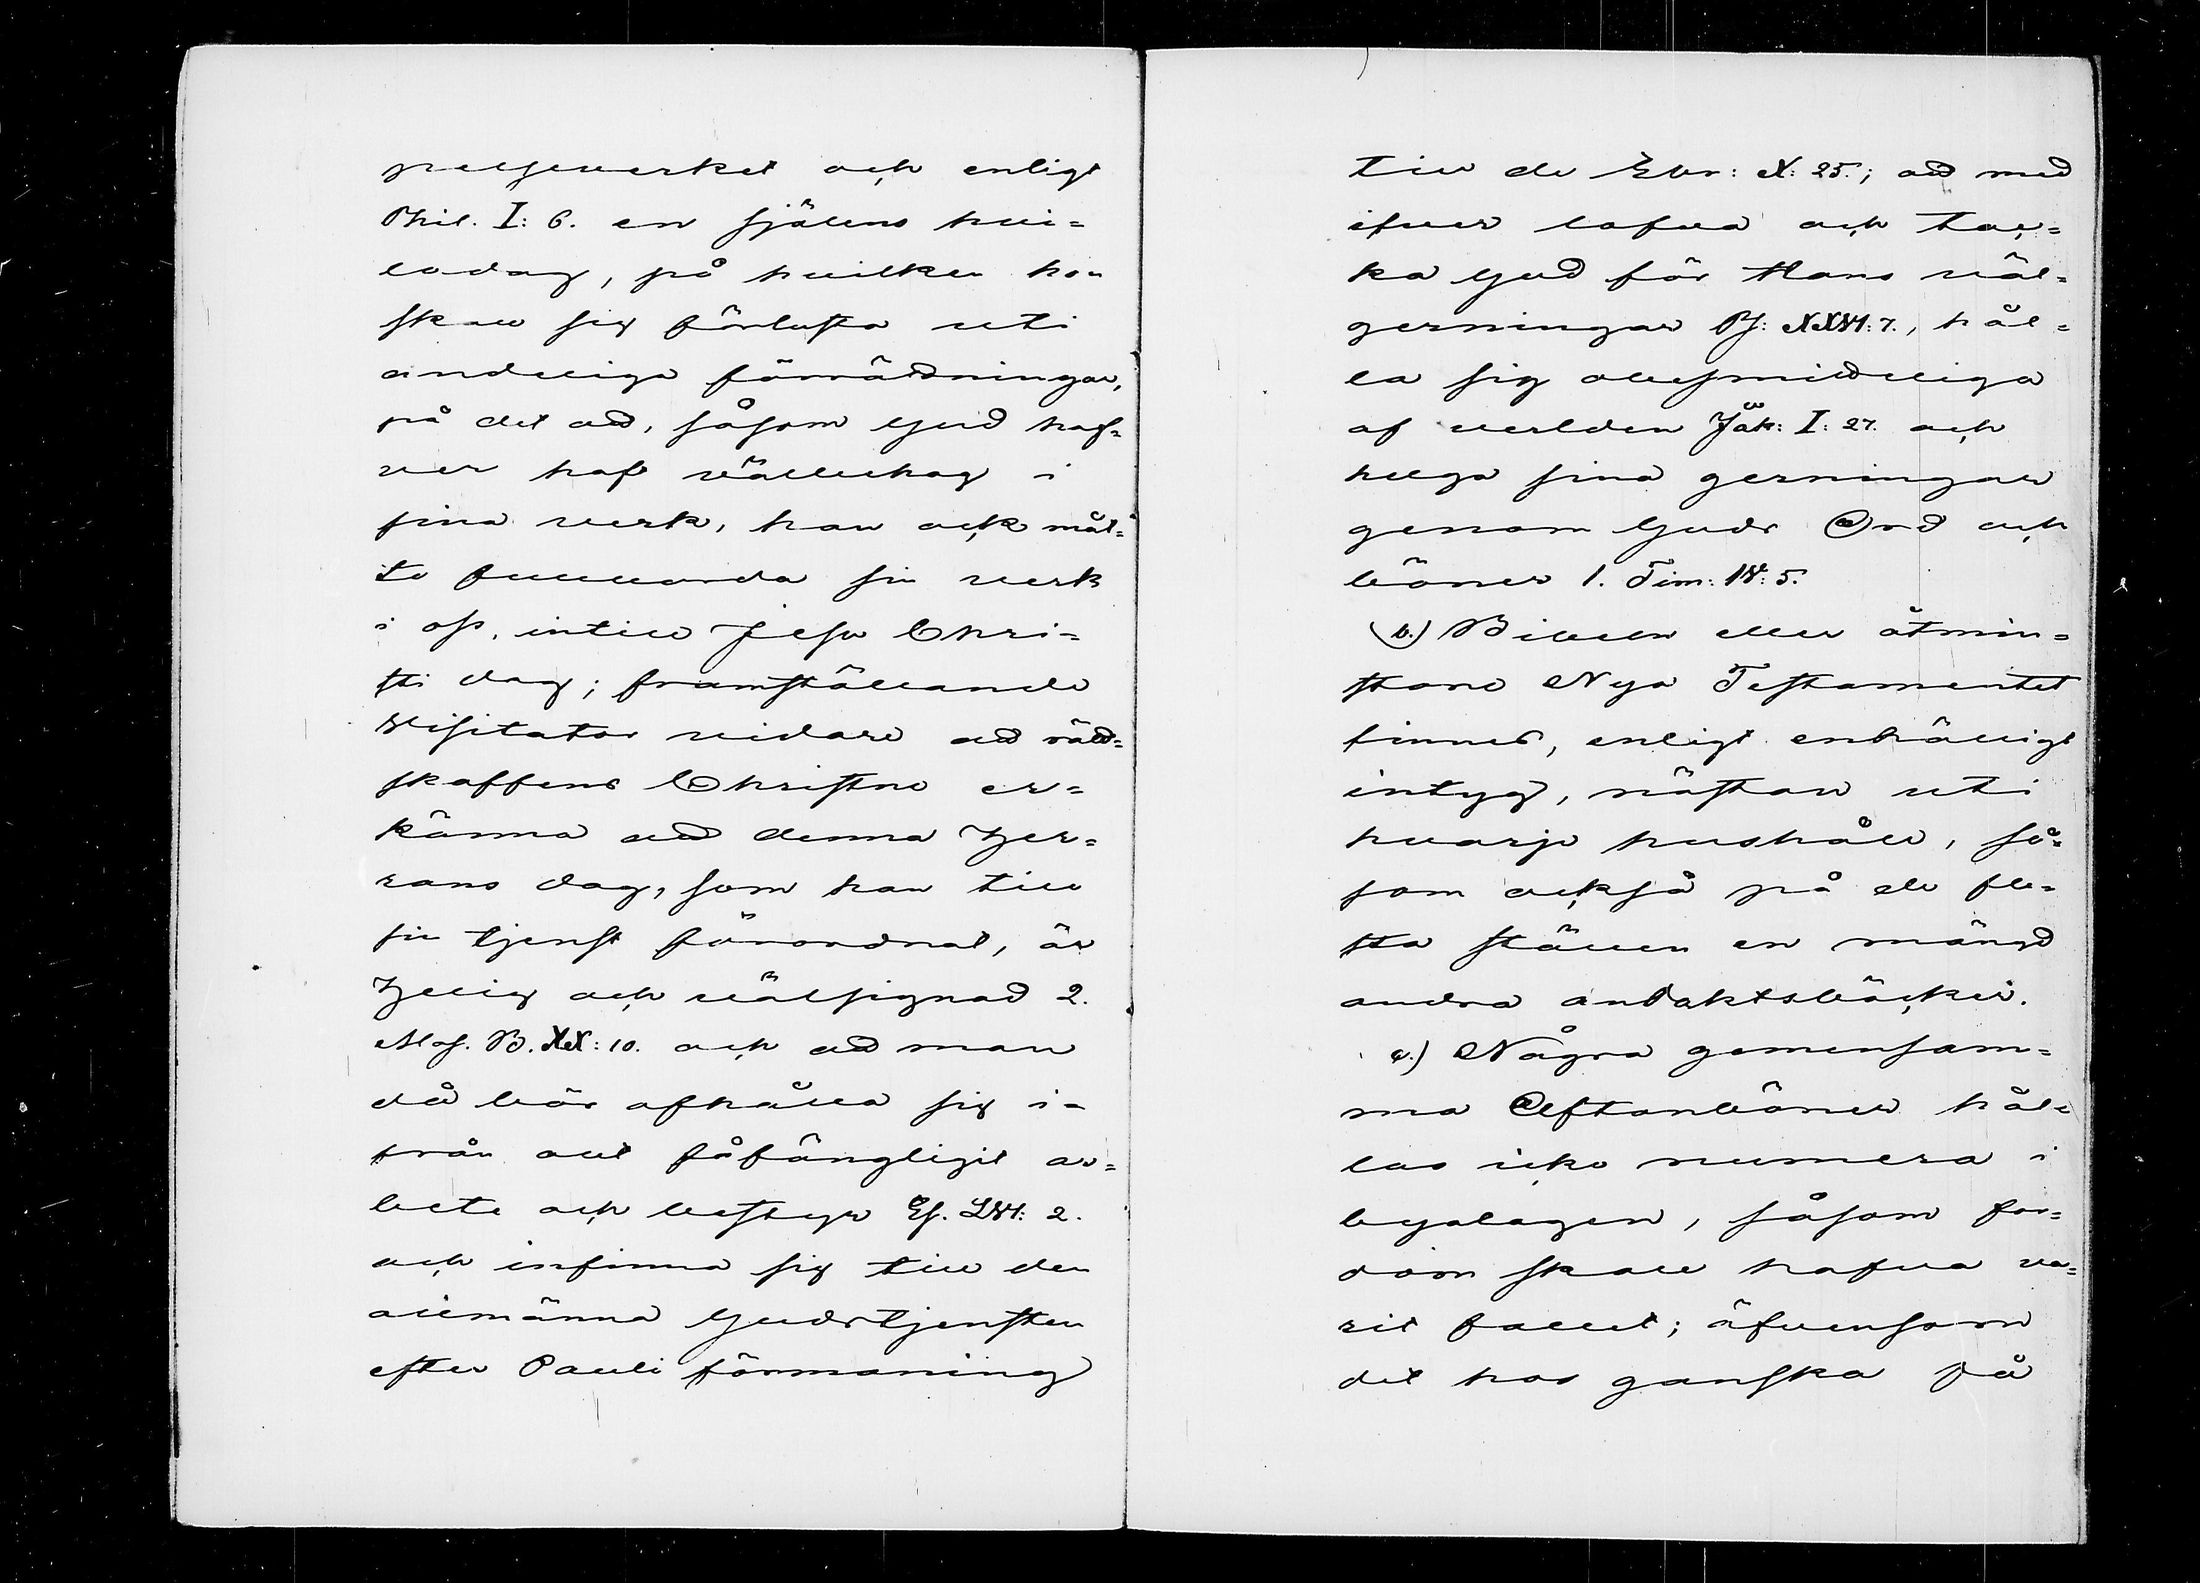 pelseverket och enligt
Phil. I: 6. en själens hvi=
lodag, på hvilken hon
skall sig förlusta uti
andeliga förrädningar,
på det att, såsom Gud haf=
ver haf vällbehag i
sina verk, han ock mål=
te fullborda sin verk
i oss, intill Jesu Chri=
sti dag; framställande
Visitator vidare att rätt=
skaffens Christne er=
känna att denna Her=
rans dag, som han till
sin tjenst förordnat, är
Helig och välsignad 2.
Mos. B. XX: 10. och att man
då bör afhålla sig i=
från allt fåfängligit ar=
bete och bestyr Es. LVI: 2.
och infinna sig till den
allmänna Gudstjensten
efter Pauli förmaning
till de Ebr: X: 25.; att med
ifver lofva och tac=
ka Gud för Hans väl=
gerningar Ps: XXVI: 7., hål=
la sig obesmitteliga
af verlden Jak: I: 27. och
helga sina gerningar
genom Guds Ord och
böner 1. Tim: IV: 5.
b.) Bibeln eller åtmin=
stone Nya Testamentet
finnes, enligt enhälligt
intyg, nästan uti
hvarje hushåll, så=
som också på de fle=
sta ställen en mängd
andra andaktsböcker.
c.) Några gemensam=
ma Aftonböner hål=
las icke numera i
byalagen, såsom for=
dom skall hafva va=
rit fallet; äfvensom
det hos ganska få